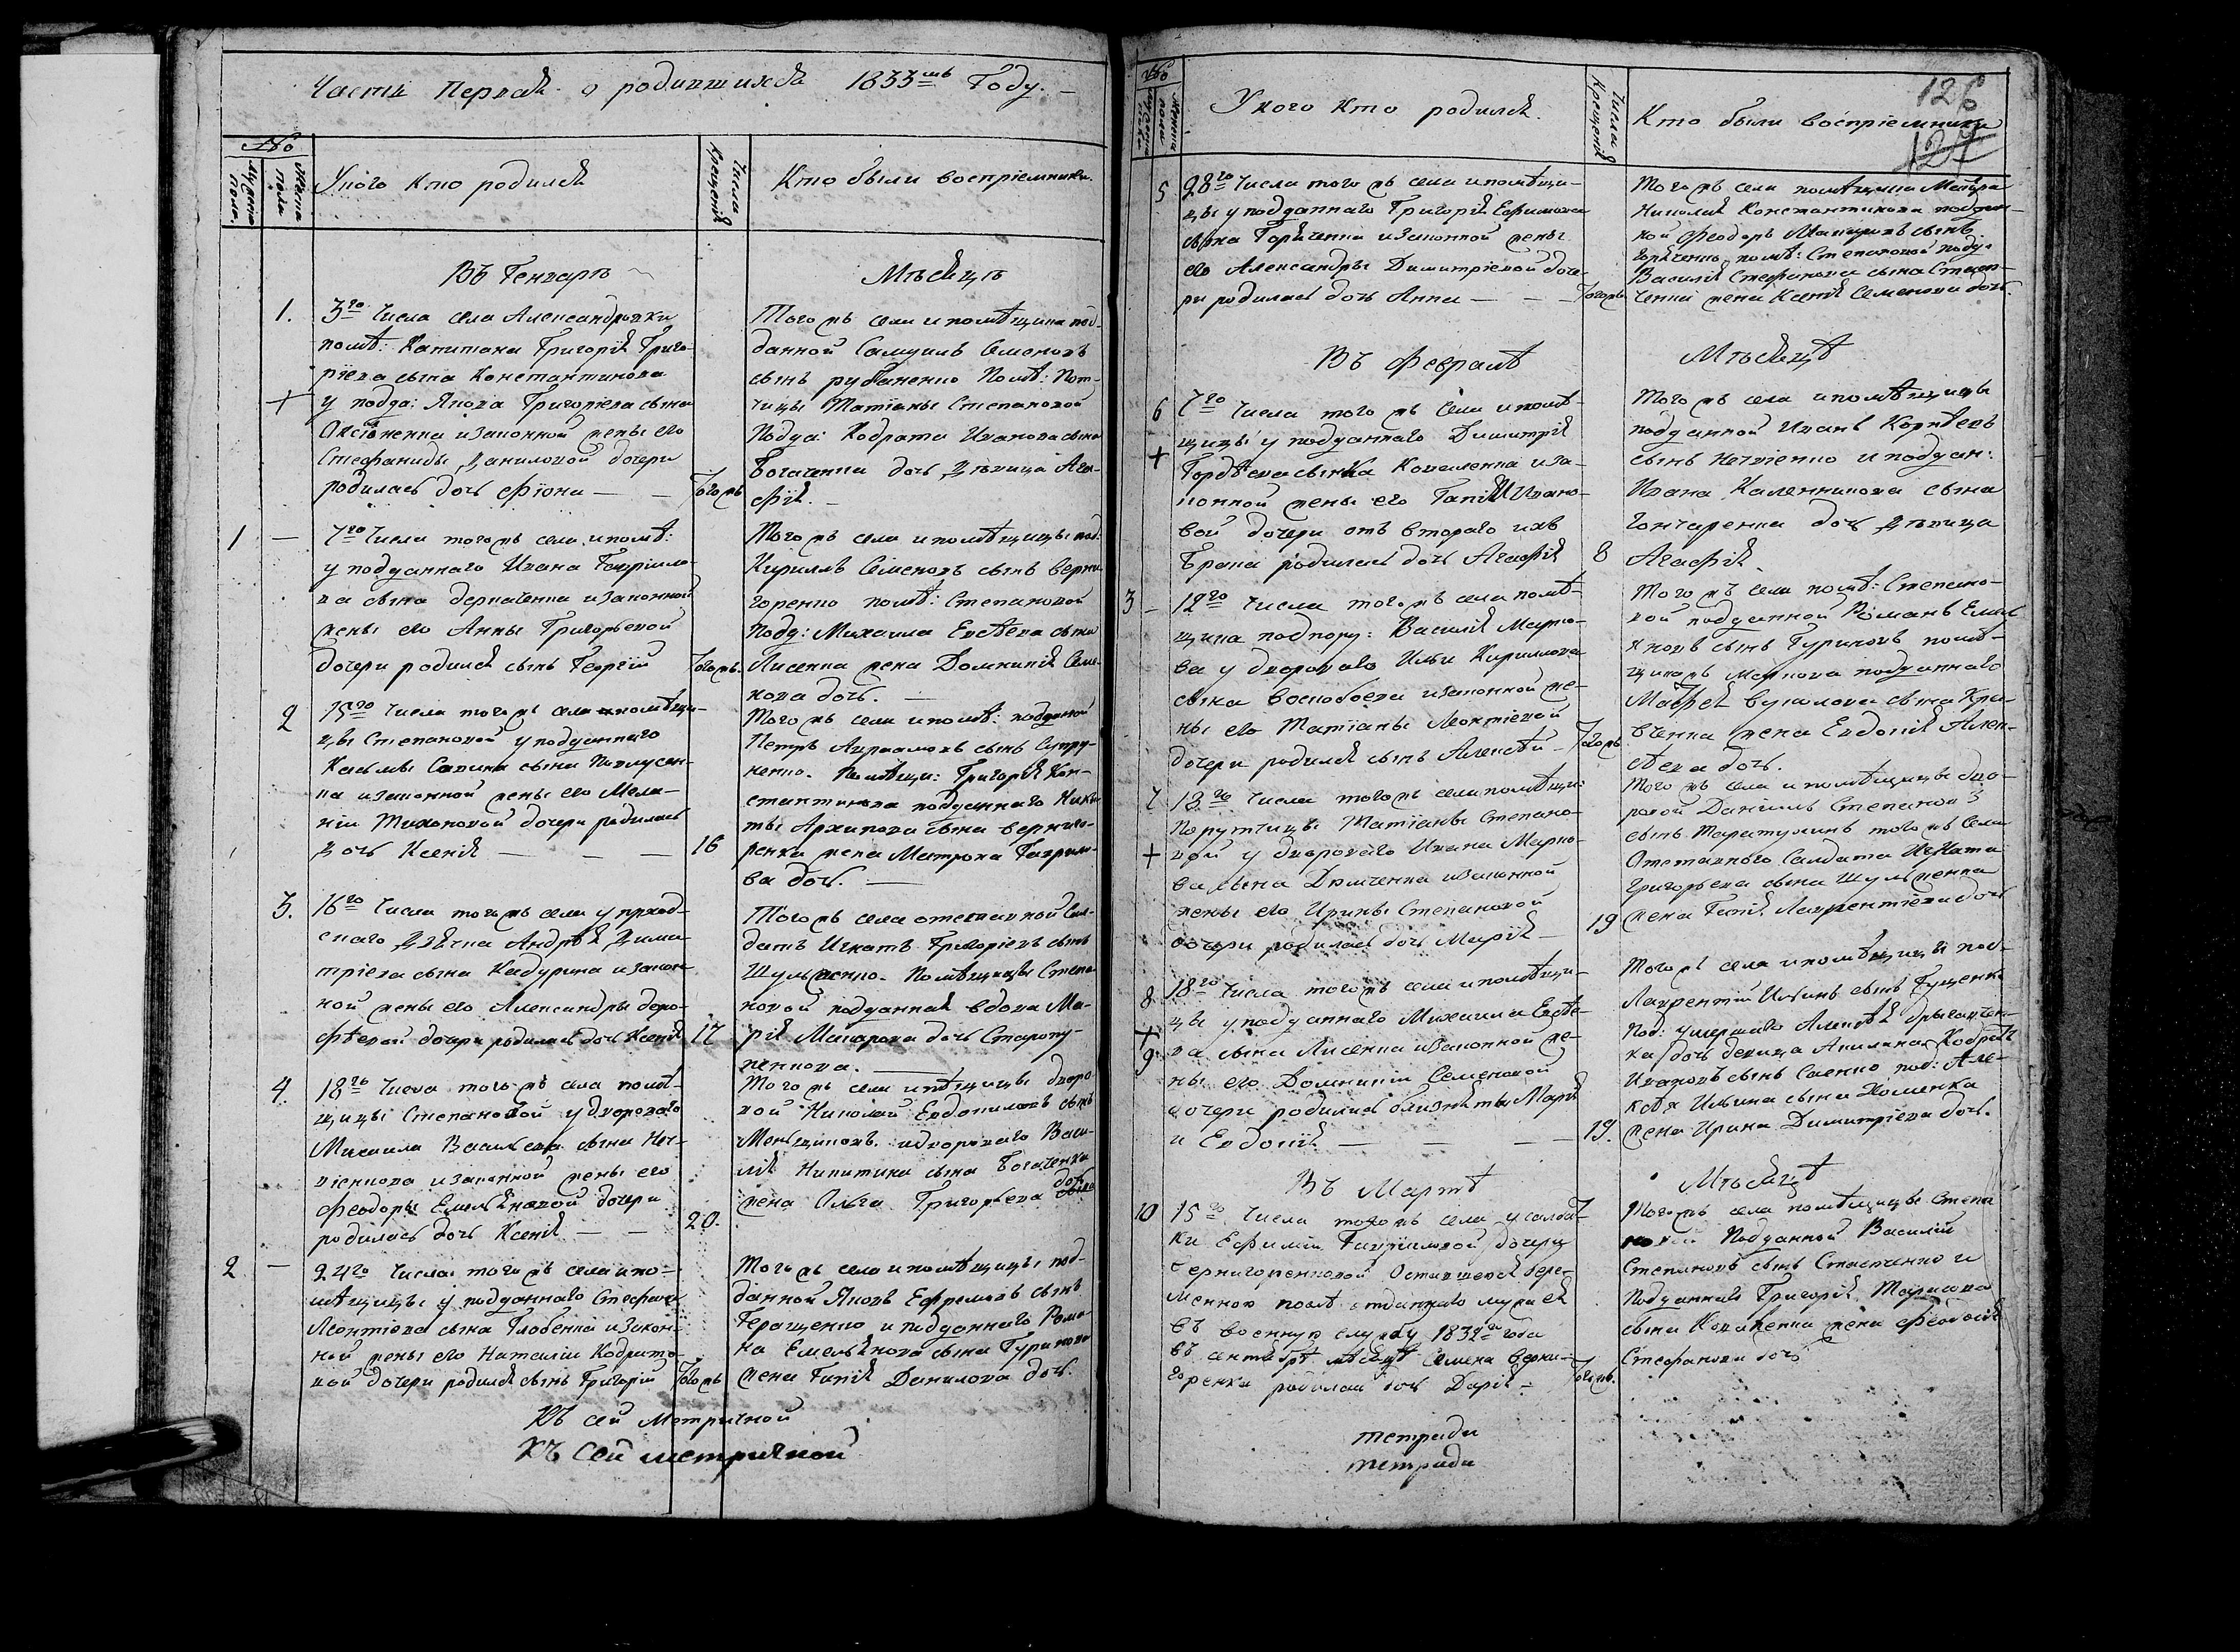 Часть Первая о родившихся 1833мъ Году.
№
Мужеска пола.
Женска пола
У кого кто родился
Числа Крещения
Кто были восприемники.
Въ Генваръ
Мѣсяцѣ
1.
3го Числа села Александровки
помѣ: Капитана Григорія Григо-
ріева сына Константинова
у подда: Якова Григоріева сына
изаконной жены его
Стефаниды Даниловой дочери
родилась дочь Фіона —
Тогожъ
Тогожъ села ипомѣщика под-
данной Самуилъ Семеновъ
сынъ рубаненко Помѣ:
Татіаны Степановой
Подда: Кодрата Иванова сына
Богаченка дочь Дѣвица Ага-
фія. —
1 —
7го Числа тогожъ села ипомѣ:
у подданнаго Ивана Гаврило-
ва сына деркаченка изаконной
жены его Анны Григорьевой
дочери родился сынъ Георгій
Тогожъ.
Тогожъ села ипомѣщицы под:
Кириллъ Семеновъ сынъ верни-
горенко помѣ: Степановой
Подд: Михаила Евсѣева сына
Лисенка жена Домникія Семе-
нова дочь. —
2
15го Числа тогожъ села ипомѣщи-
цы Степановой у подданнаго
Касьмы Савина сына
на изаконной жены его Мела-
ніи Тихоновой дочери родилась
Дочь Ксенія — — —
16
Тогожъ села ипомѣ: подданой
Петръ Авраамовъ сынъ Супру-
ненко. Помѣщи: Григорія Кон-
стантинова подданнаго Ники-
ты Архипова сына верниго-
ренка жена Матрона Гаврило-
ва дочь. —
3.
16го Числа тогожъ села у приход-
скаго Дячка Андрѣя Дими-
тріева сына Кадурина изакон-
ной жены его Александры доро-
фѣевой дочери родилась дочь Ксенія
17
Тогожъ села отставной Сол-
датъ Игнатъ Григоріевъ сынъ
Шульженко. Помѣщицы Степа-
новой подданная вдова Ма-
рія Макарова дочь Староту-
женкова. —
4.
18го Числа тогожъ села помѣ-
щицы Степановой у двороваго
Михаила Васильева сына Неч-
віенкова изаконной жены его
Феодоры Емельяновой дочери
родилась дочь Ксенія — —
20.
Тогожъ села ипѣщицы дворо-
вой Николай Евдокимовъ сынъ
Меньщиковъ. идвороваго Васи-
лія Никитина сына Богаченка
жена Ольга Григорьева дочь
2 —
24го Числа тогожъ села ипо-
мѣщицы у подданнаго Стефана
Леонтіева сына Глобенка изакон-
ной жены его Наталіи Кодрато-
вой дочери родился сынъ Григорій
Тогожъ
Тогожъ села ипомѣщицы под-
данной Яковъ Ефремовъ сынъ
Геращенко и подданнаго Рома-
на Емельянова сына Гурикова
жена Гапія Данилова дочь.
Къ сей Метричной
Къ сей метричной
№
У кого кто родился.
Числа Крещенія
Кто были воспріемники
126
127
5
28го Числа тогожъ села ипомѣщи-
цы у подданнаго Григорія Ефимова
сына Горяченка изаконной жены
его Александры Димитріевой доче-
ри родилась дочь Анна — — —
Тогожъ
Тогожъ села помѣщика Маіора
Николая Константинова поддан-
ной Феодоръ сынъ
Горяченко помѣ: Степановой подд:
Василія Стефанова сына Стает-
ченка жена Ксенія Семенова дочь.
Въ Февралѣ
Мѣсяцѣ
6
+
7го Числа тогожъ села ипомѣ-
щицы у подданнаго Димитрія
Гордѣева сынка Коваленка иза-
конной жены его Гапіи Ивано-
вой дочери отъ втораго ихъ
брака родилась дочь Агафія
8
Тогожъ села ипомѣщицы
подданной Иванъ Корнѣевъ
сынъ Нечвіенко и поддан:
Ивана Каленникова сына
Гончаренка дочь Дѣвица
Агафія.
3 —
12го Числа тогожъ села помѣ-
щика подпору: Василія Марко-
ва у двороваго Ильи Кириллова
сына воскобоева изаконной же-
ны его Татіаны Леонтіевой
дочери родился сынъ Алексѣй —
Тогожъ
Тогожъ села помѣ: Степано-
вой подданной Романъ Емель-
яновъ сынъ Гуриковъ помѣ-
щиковъ Маркова подданнаго
Матфея вуколова сына Кра-
вченка жена Евдокія Алек-
сѣева дочь.
7
+
13го Числа тогожъ села помѣщи:
Порутчицы Татіаны Степано-
вой у двороваго Ивана Марко-
ва сына Дюмченка изаконной
жены его Ирины Степановой
дочери родилась дочь Марія —
19
Тогожъ села ипомѣщицы дво-
ровой Даніилъ Степановъ
сынъ Таратухинъ тогожъ села
Отставного Салдата Игната
Григорьева сына Шульженка
жена Гапія Лаврентіева дочь
8
+
9
18го Числа тогожъ села ипомѣщи-
цы у подданнаго Михаила Евсѣе-
ва сына Лисенка изаконной же-
ны его Домникіи Семеновой
дочери родились близняты Марія
и Евдокія — — —
19.
Тогожъ села ипомѣщицы под-
Лаврентій Ильинъ сынъ Гуценко
Под: умершаго Алексѣя
дочь девица Акилина, Кодратъ
Ивановъ сынъ Саенко под: Але-
ксѣя Ильина сына Хоменка
жена Ирина Димитріева дочь.
Въ Мартѣ
Мѣсяцѣ
10
15го Числа тогожъ села у салдат-
ки Ефиміи Гавриловой дочери
Вернигоренковой Оставшейся бере-
менною послѣ отданнаго мужа ея
въ военную службу 1832го года
въ сентябрѣ мѣсяцѣ Семена Верни-
горенка родилась дочь Дарія —
Тогожъ.
Тогожъ села помѣщицы Степа-
новой Подданной Василій
Степановъ сынъ Стаетченко и
Подданнаго Григорія Тарасова
сына Коваленка жена Феодосія
Стефанова дочь
тетради
тетради